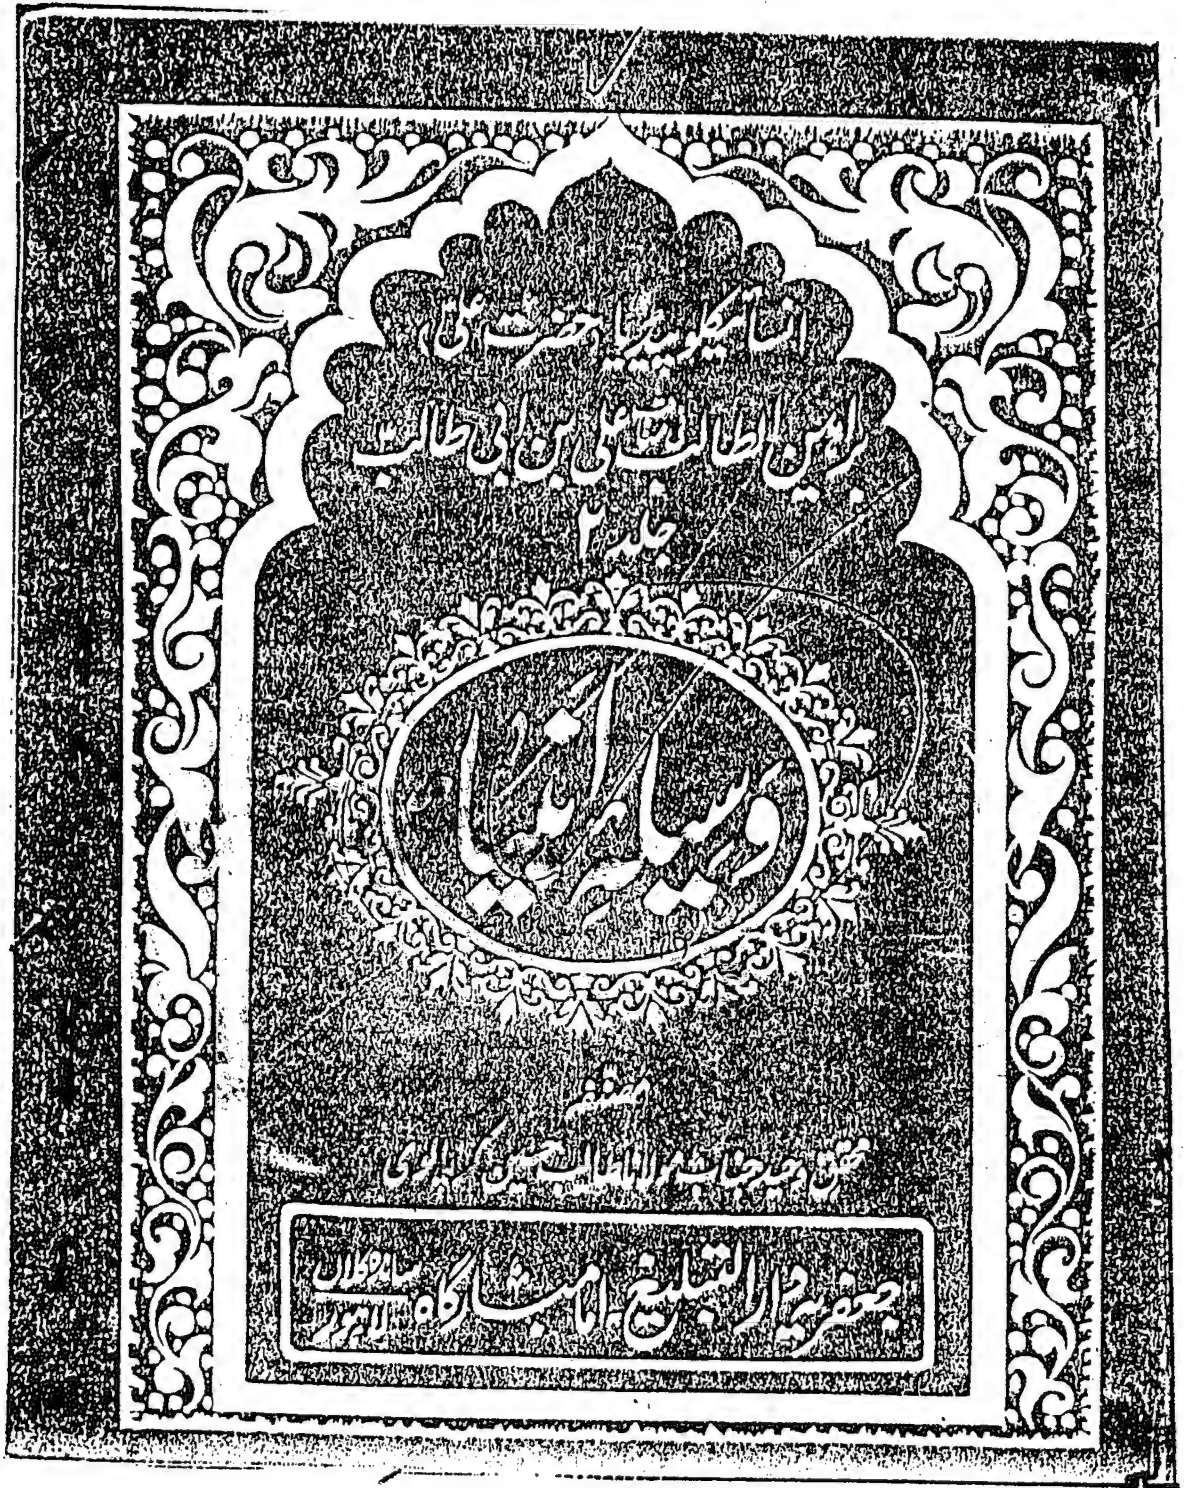 انسائیکلوپیڈیا حضرت علیؑ
براہین المطالب علی بن ابی طالبؑ
جلد ۲
وسیلہ انبیاء
مصنفہ
محقق جناب مولانا طالب حسین کرپالوی
جعفریہ دارالتبلیغ۔ امام بارگاہ ساندہ کلاں
لاہور